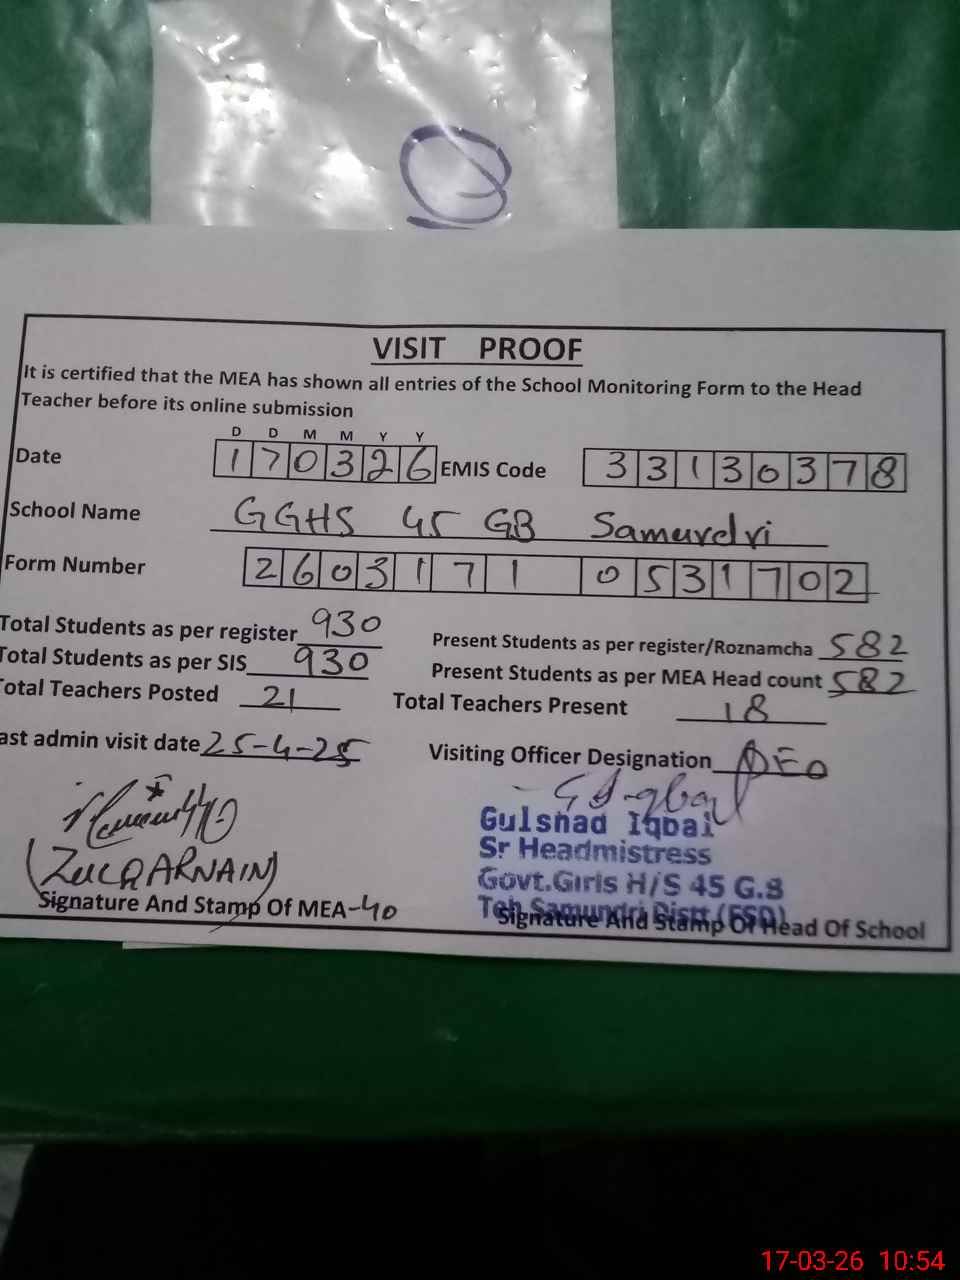 VISIT PROOF
It is certified that the MEA has shown all entries of the School Monitoring Form to the Head
Teacher before its online submission
D D M M Y Y
Date 170326 EMIS Code 33130378
School Name GGHS 45 GB Samundri
Form Number 2603171 0531702
Total Students as per register 930
Present Students as per register/Roznamcha 582
Total Students as per SIS 930
Present Students as per MEA Head count 582
Total Teachers Posted 21
Total Teachers Present 18
ast admin visit date 25-4-25
Visiting Officer Designation DEO
(ZULQARNAIN)
Signature And Stamp Of MEA-40
Gulshad Iqbal
Sr Headmistress
Govt.Girls H/S 45 G.B
Teh Samundri Distt (FSD)
Signature And Stamp Of Head Of School
17-03-26 10:54